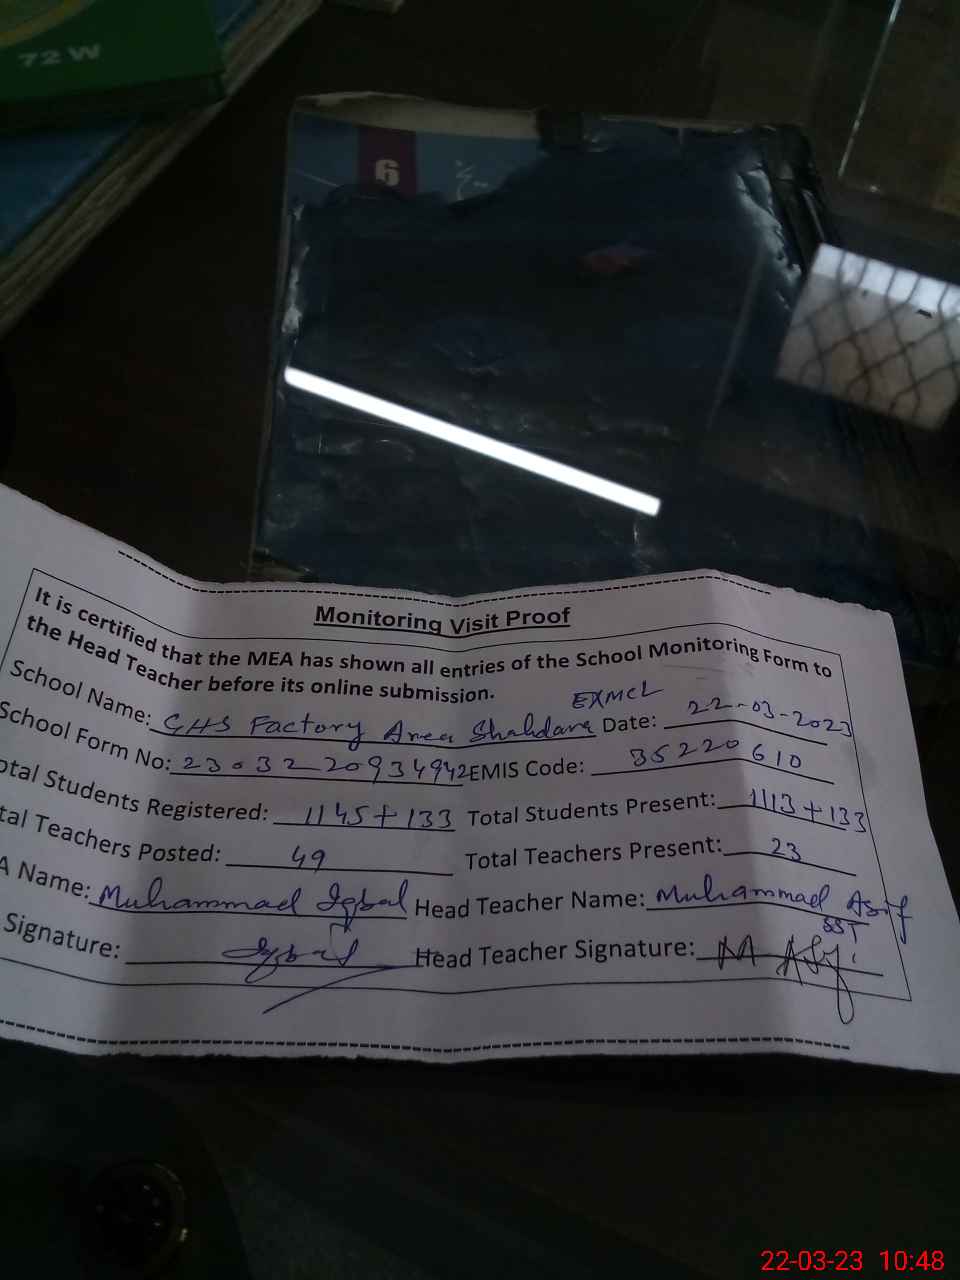 72 W
6
Monitoring Visit Proof
It is certified that the MEA has shown all entries of the School Monitoring Form to
the Head Teacher before its online submission.
EXMCL
School Name: GHS Factory Area Shahdara Date: 22-03-2023
School Form No: 23032220934942 EMIS Code: 35220610
otal Students Registered: 1145+133 Total Students Present: 1113+133
tal Teachers Posted: 49 Total Teachers Present: 23
A Name: Muhammad Iqbal Head Teacher Name: Muhammad Asif
SST
Signature: Iqbal Head Teacher Signature: M Asif
22-03-23 10:48